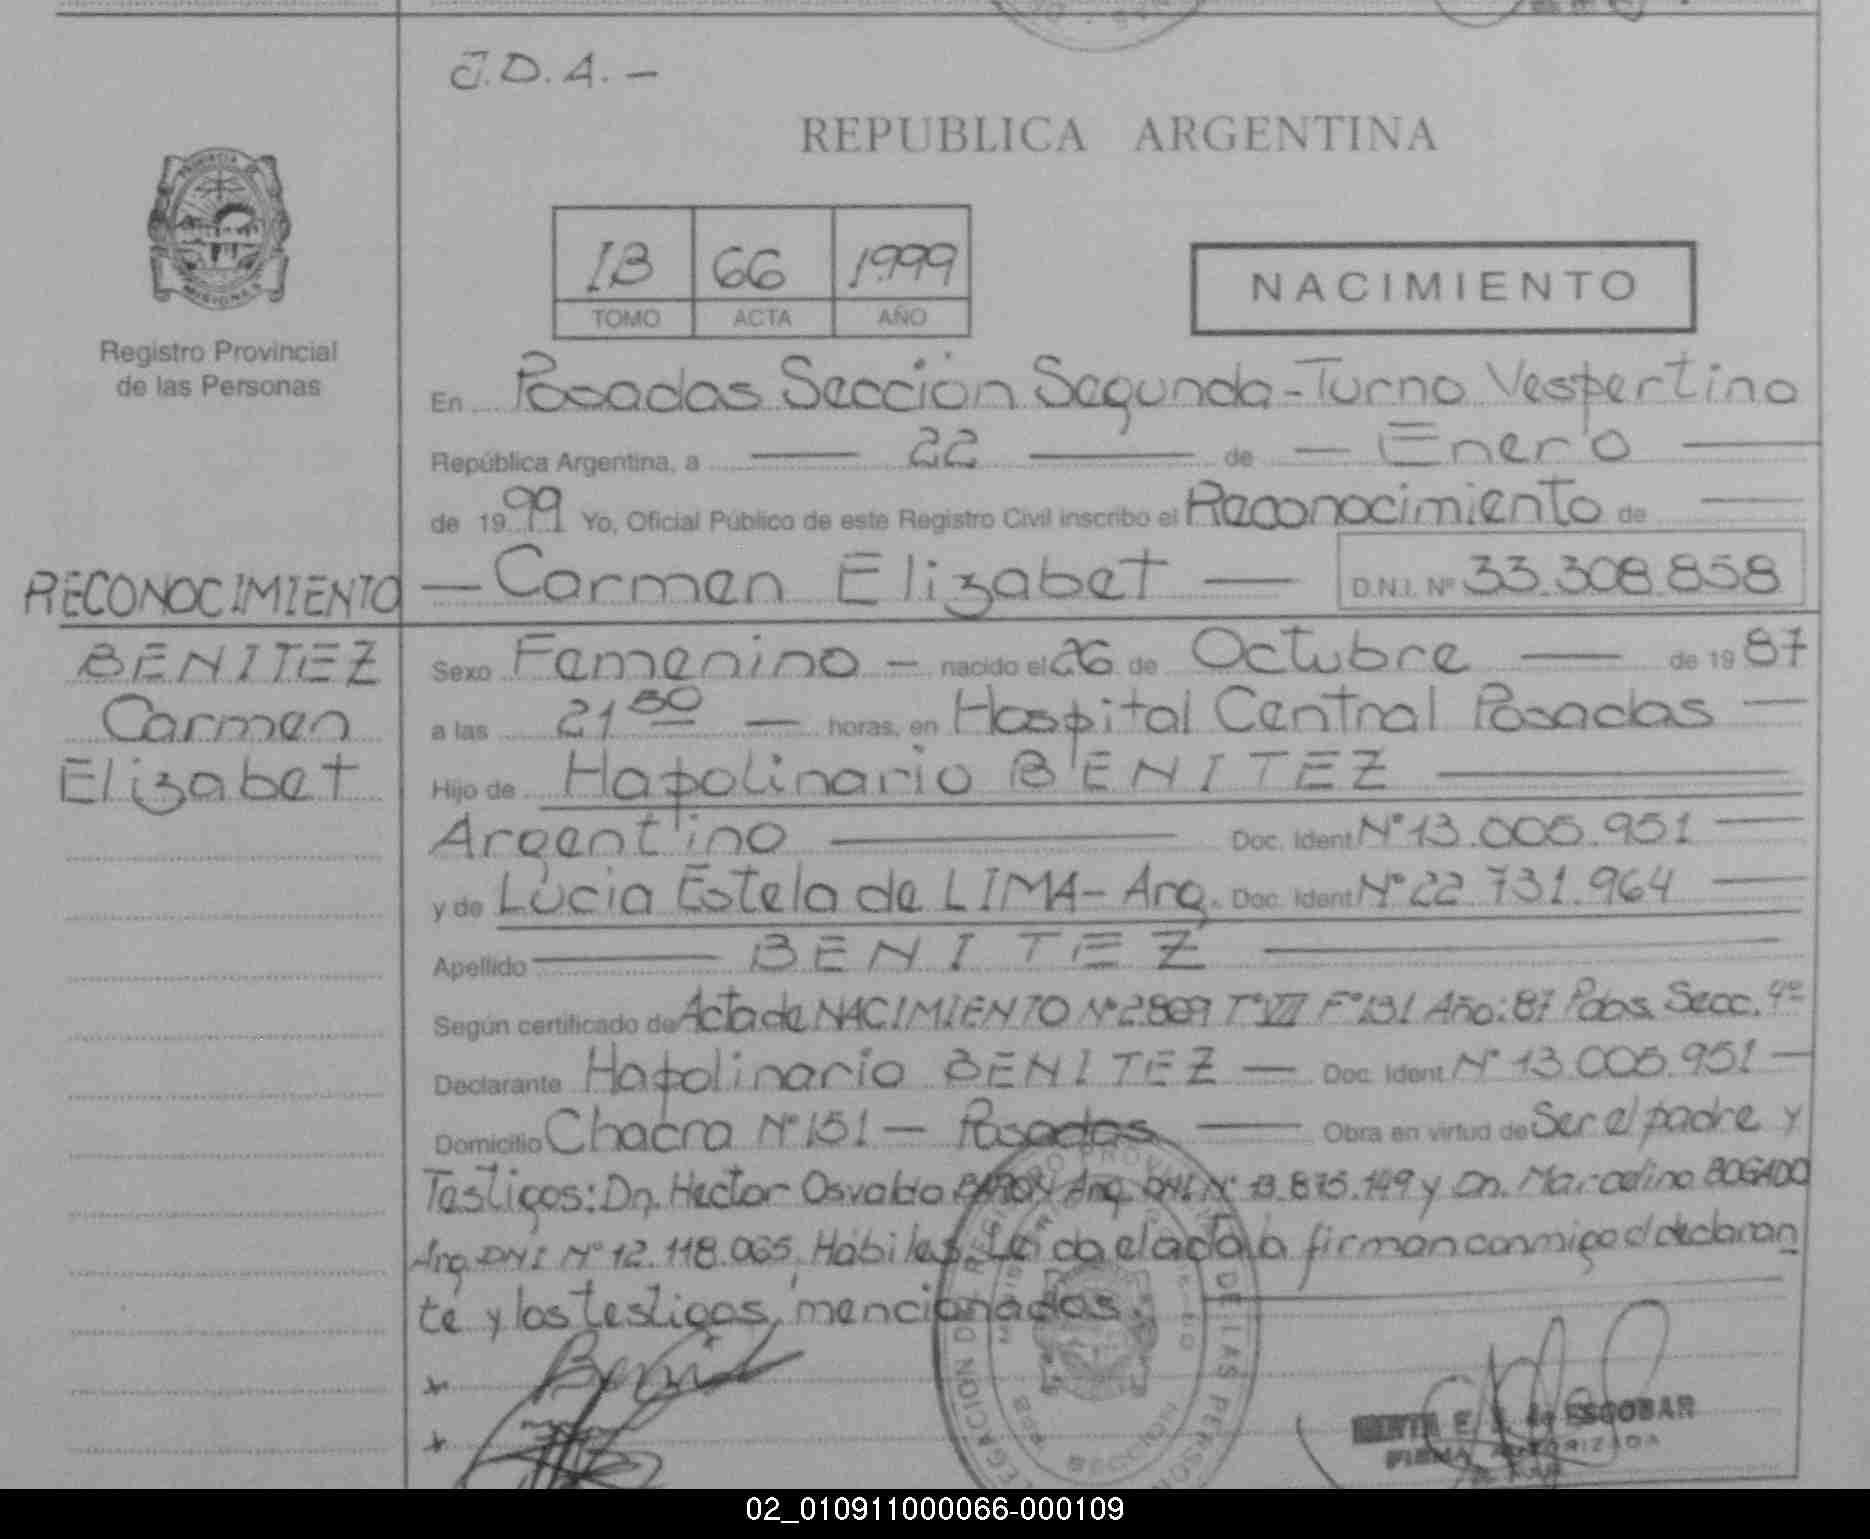 J.D.A. —
REPUBLICA ARGENTINA
PROVINCIA DE
MISIONES
IB 66 1999
TOMO ACTA AÑO
NACIMIENTO
Registro Provincial
de las Personas
En Posadas Sección Segunda-Turno Vespertino
República Argentina, a — 22 — de — Enero —
de 1999 Yo, Oficial Público de este Registro Civil inscribo el Reconocimiento de —
RECONOCIMIENTO — Carmen Elizabet — D.N.I. Nº 33.308.858
BENITEZ
Carmen
Elizabet
Sexo Femenino — nacido el 26 de Octubre — de 1987
a las 21 50 — horas, en Hospital Central Posadas —
Hijo de Hapolinario BENITEZ —
Argentino — Doc. Ident Nº 13.005.951 —
y de Lucia Estela de LIMA- Arg. Doc. Ident Nº 22.731.964 —
Apellido — BENITEZ —
Según certificado de Acta de NACIMIENTO Nº 2809 Tº VII Fº 131 Año: 87 Pdas. Secc. 4º
Declarante Hapolinario BENITEZ — Doc. Ident Nº 13.005.951 —
Domicilio Chacra Nº 151 — Posadas — Obra en virtud de Ser el padre y
Testigos: Dn. Hector Osvaldo Arg. DNI Nº 13.875.149 y Dn. Marcelino BOGADO
Arg. DNI Nº 12.118.065, Hábiles. Leida el acta la firman conmigo el declaran
te y los testigos, mencionados.
E. de ESCOBAR
FIRMA AUTORIZADA
02_010911000066-000109